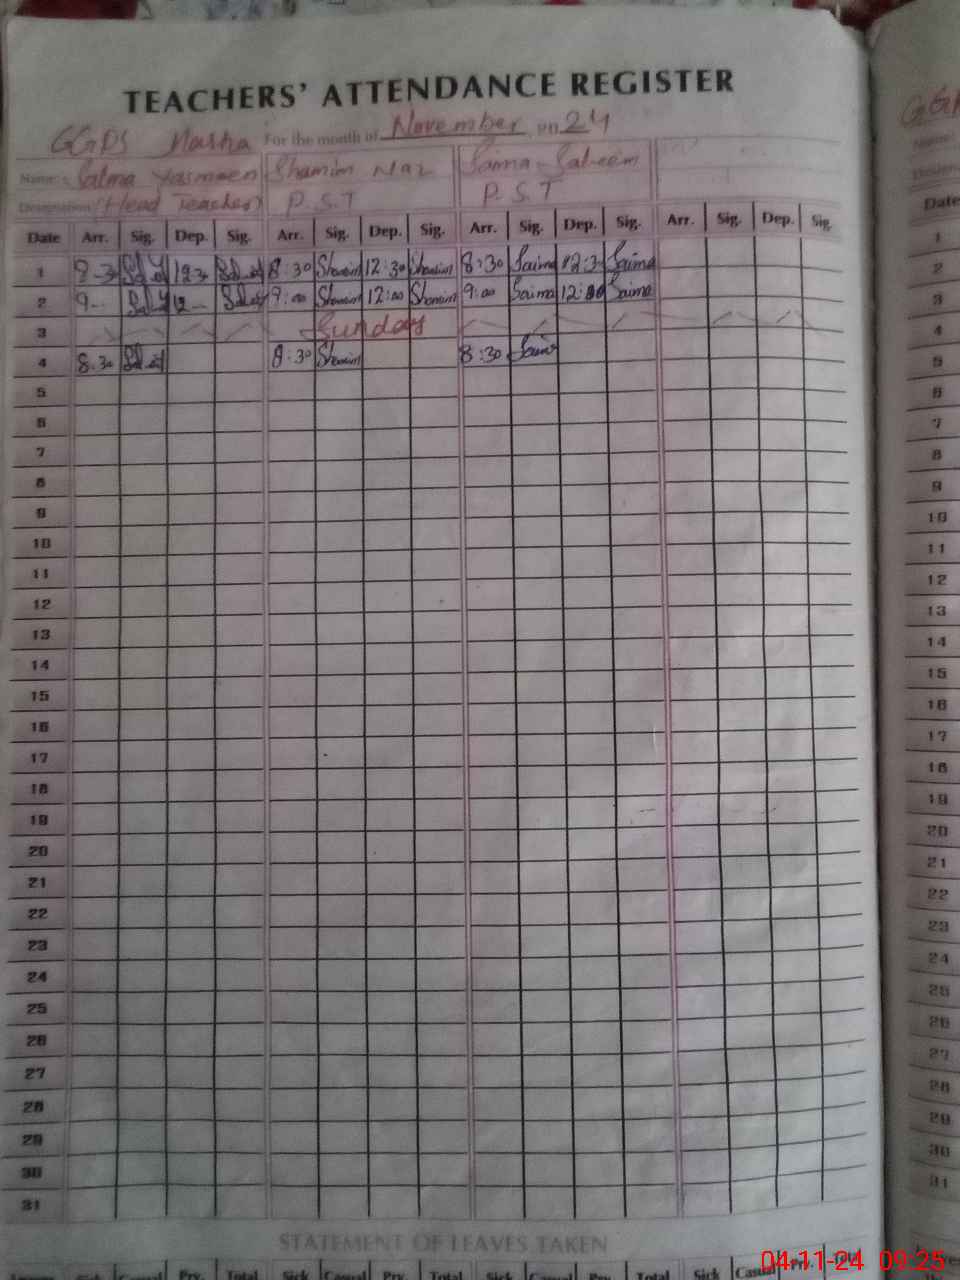 TEACHERS' ATTENDANCE REGISTER
GGPS Marha For the month of November, on 24
Name: Salma Yasmeen Shamim Naz Saima Saleem
Designation (Head Teacher) P.S.T P.S.T
Date Arr. Sig. Dep. Sig. Arr. Sig. Dep. Sig. Arr. Sig. Dep. Sig. Arr. Sig. Dep. Sig.
1 8:30 Shamim 12:30 Shamim 8:30 Saima 12:3 Saima
2 9 12 9:00 Shamim 12:00 Shamim 9:00 Saima 12:00 Saima
3 Sunday
4 8:30 8:30 Shamim 8:30 Saima
5
6
7
8
9
10
11
12
13
14
15
16
17
18
19
20
21
22
23
24
25
26
27
28
29
30
31
STATEMENT OF LEAVES TAKEN
Sick Casual Prv. Total Sick Casual Prv. Total Sick Casual Prv. Total
GG
Date
1
2
3
4
5
6
7
8
9
10
11
12
13
14
15
16
17
18
19
20
21
22
23
24
25
26
27
28
29
30
31
04-11-24 09:25